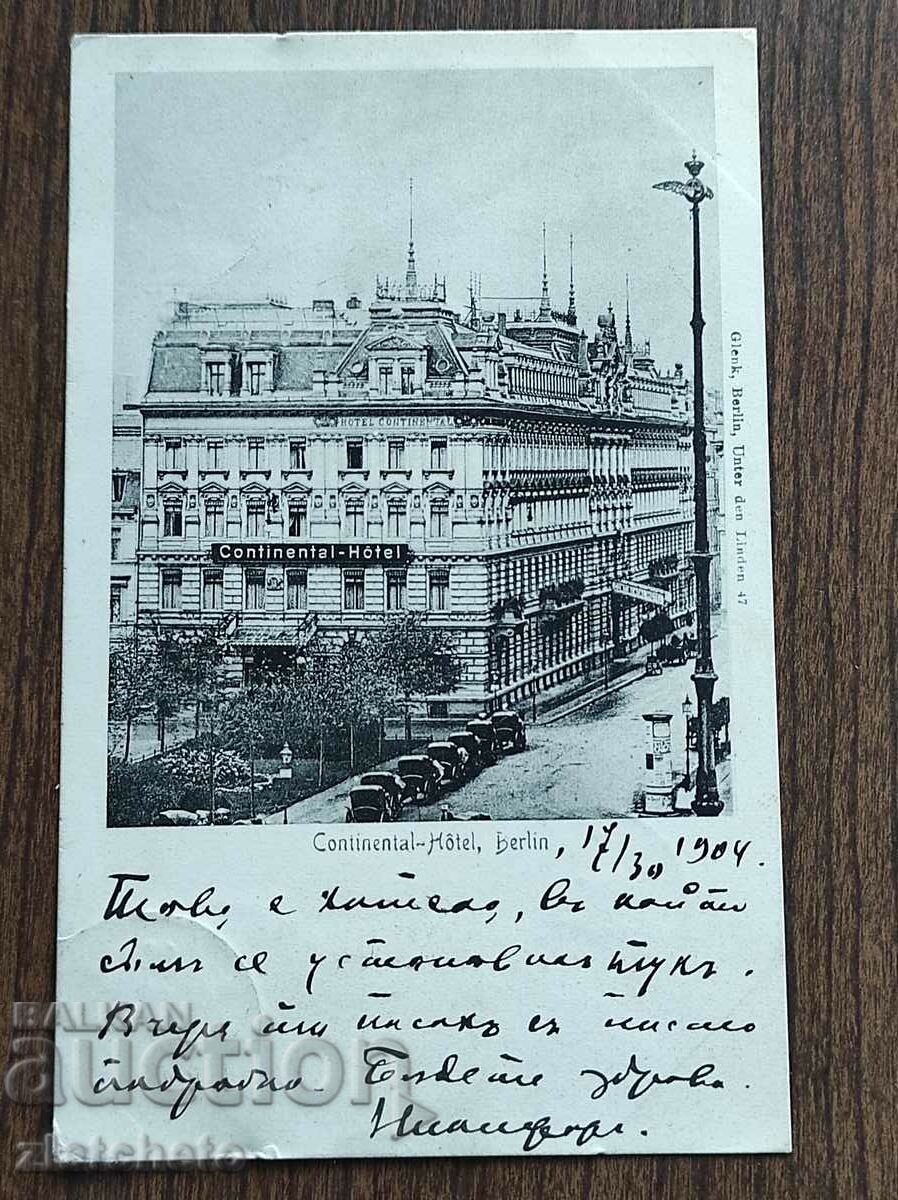 HOTEL CONTINENTAL
Continental-Hôtel
Glenk, Berlin, Unter den Linden 47
Continental-Hôtel, Berlin, 17/30 1904.
Това е хотела, въ който
съмъ се установилъ тукъ.
Вчера ти писахъ съ писмо
подробно. Бѫдете здрава.
BALKAN
auction
zlatcheto